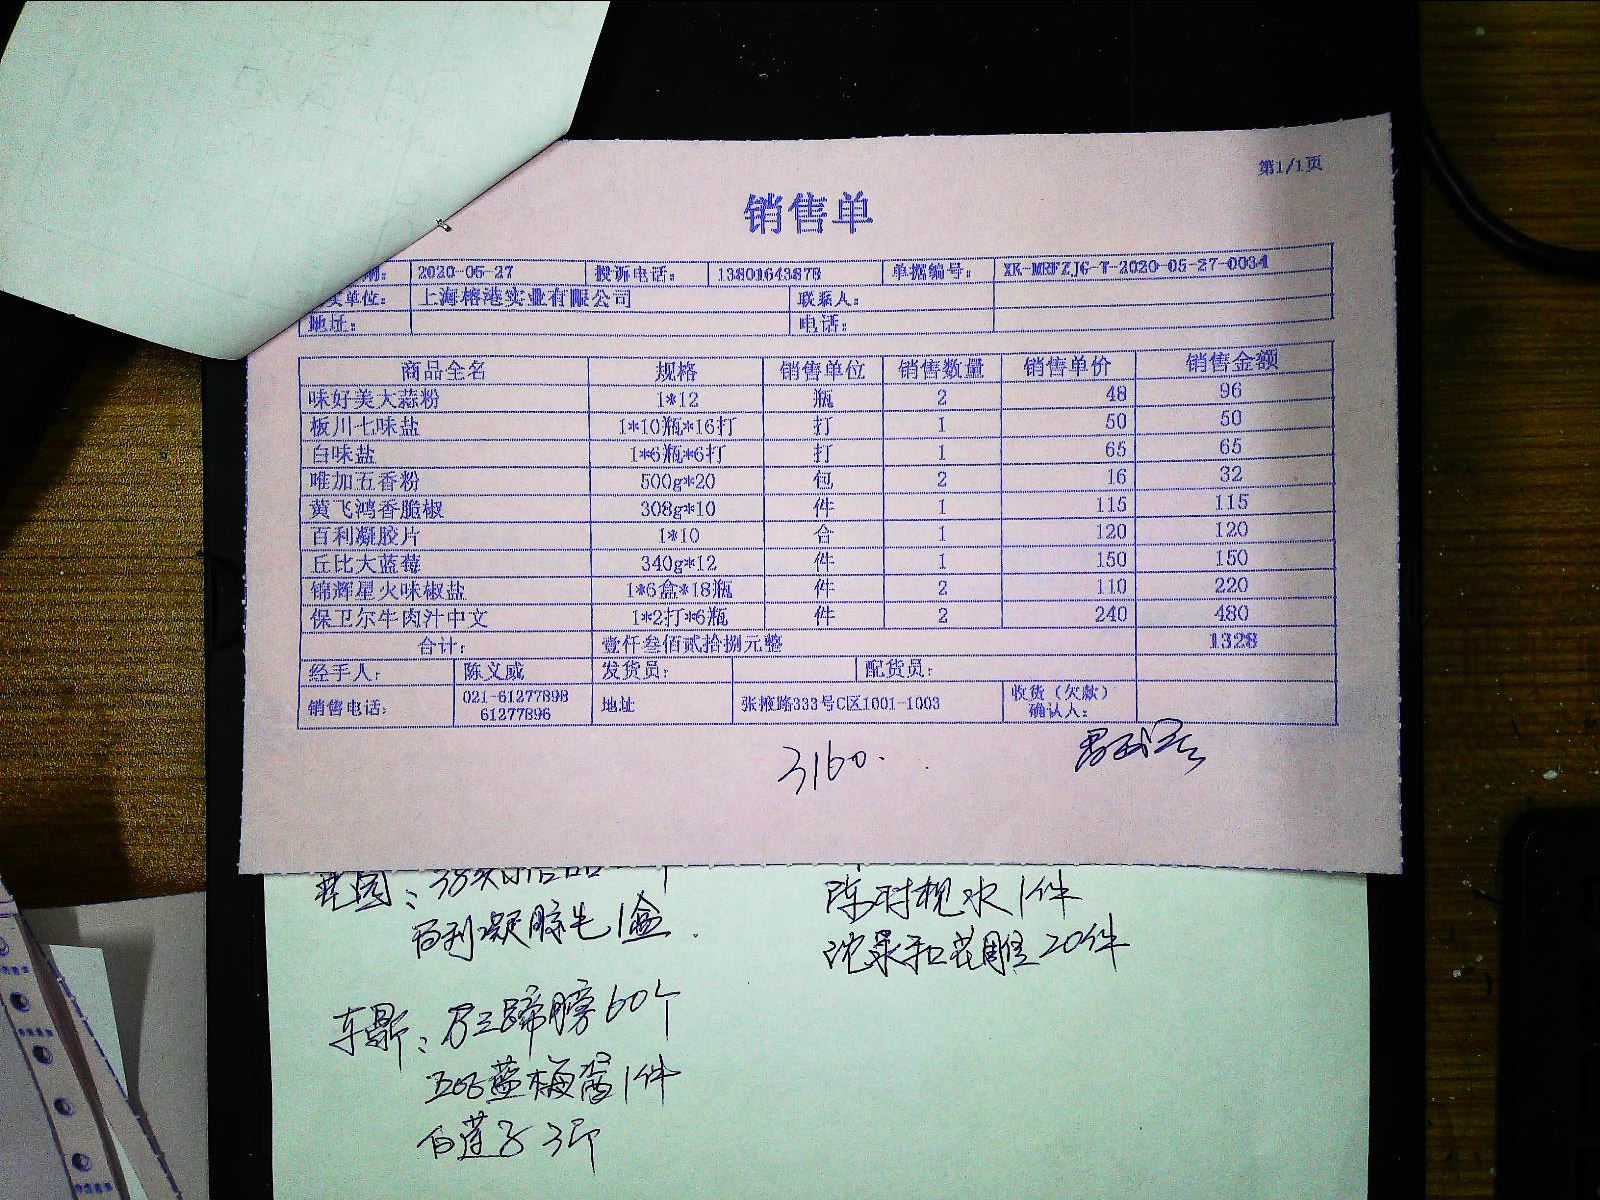 第1/1页
销售单
2020-05-27 投诉电话: 13801643878 单据编号: XK-MRFZJG-T-2020-05-27-0034
单位: 上海榕港实业有限公司 联系人:
地址: 电话:
商品全名 规格 销售单位 销售数量 销售单价 销售金额
味好美大蒜粉 1*12 瓶 2 48 96
板川七味盐 1*10瓶*16打 打 1 50 50
白味盐 1*6瓶*6打 打 1 65 65
唯加五香粉 500g*20 包 2 16 32
黄飞鸿香脆椒 308g*10 件 1 115 115
百利凝胶片 1*10 合 1 120 120
丘比大蓝莓 340g*12 件 1 150 150
锦辉星火味椒盐 1*6盒*18瓶 件 2 110 220
保卫尔牛肉汁中文 1*2打*6瓶 件 2 240 480
合计: 壹仟叁佰贰拾捌元整 1328
经手人: 陈义威 发货员: 配货员:
销售电话: 021-61277898 61277896 地址 张掖路333号C区1001-1003 收货(欠款)确认人:
3160.
陈村枧水1件
百利凝胶片1盒.
沈永和花雕20件
万三蹄膀60个
蓝梅酱1件
白莲子3斤